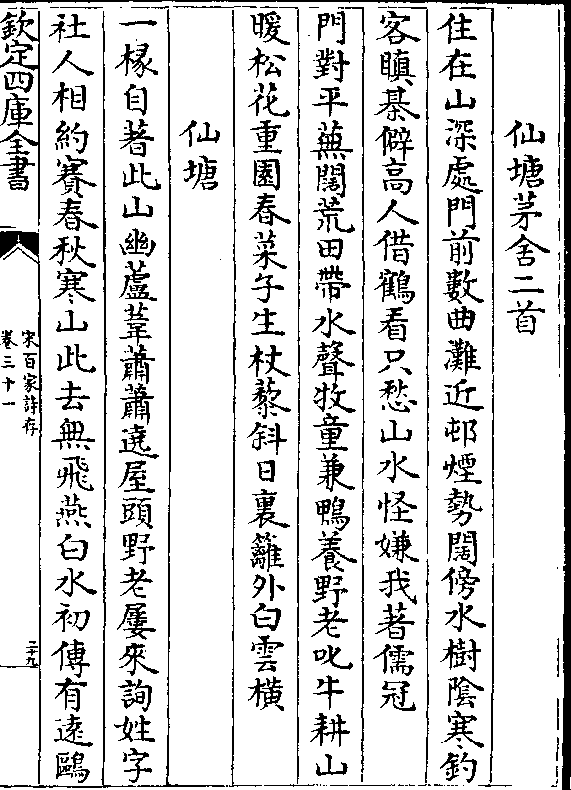 仙塘茅舍二首
住在山深處門前數曲灘近邨煙勢闊傍水樹陰寒釣
客瞋棊僻高人借鶴看只愁山水怪嫌我著儒冠
門對平蕪闊荒田帶水聲牧童兼鴨養野老叱牛耕山
暖松花重園春菜子生杖藜斜日裏籬外白雲橫
仙塘
一椽自著此山幽蘆葦蕭蕭遶屋頭野老屢來詢姓字
社人相約賽春秋寒山此去無飛燕白水初傳有遠鷗
欽定四庫全書
宋百家詩存
卷三十一
二十九